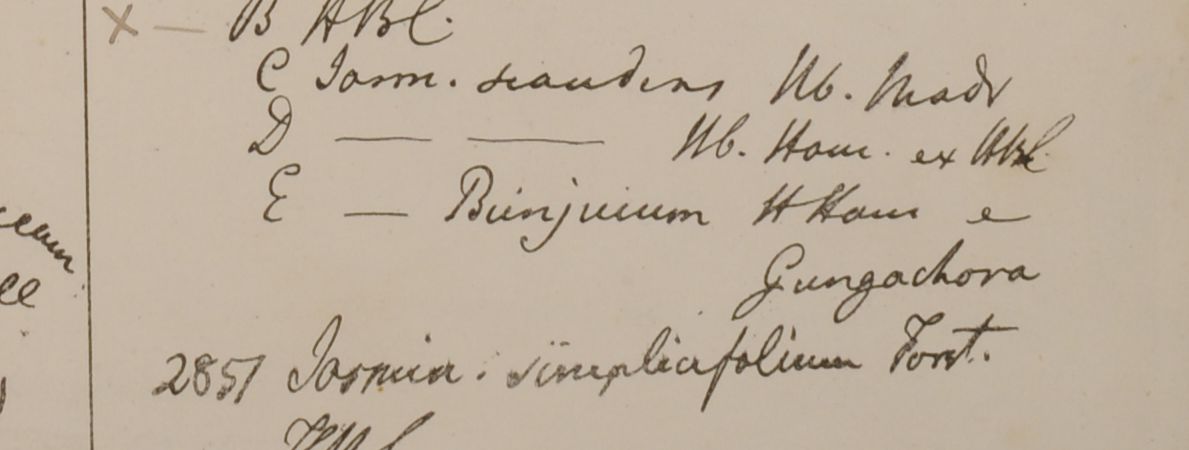 × — B HBC.
C Jasm. scandens Hb. Madr
D — — Hb. Ham. ex HBC
E — Bunjuium HHam e
Gungachora
2851 Jasmin. simplicifolium Forst.